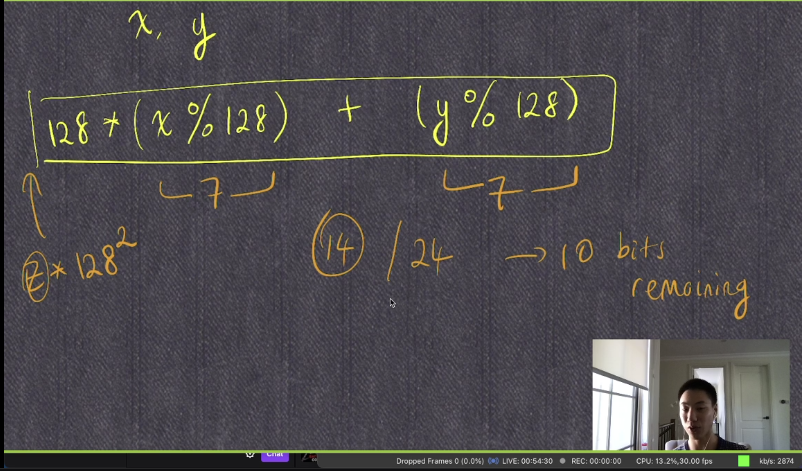 x, y
128 * (x % 128) + (y % 128)
7 7
z * 128² 14 / 24 → 10 bits
remaining
Chat
Dropped Frames 0 (0.0%) LIVE: 00:54:30 REC: 00:00:00 CPU: 13.2%,30.00 fps kb/s: 2874